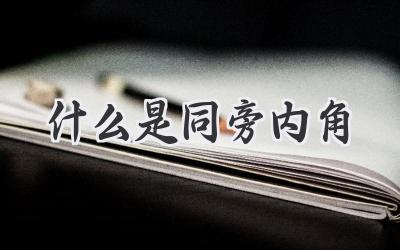 什么是同旁内角